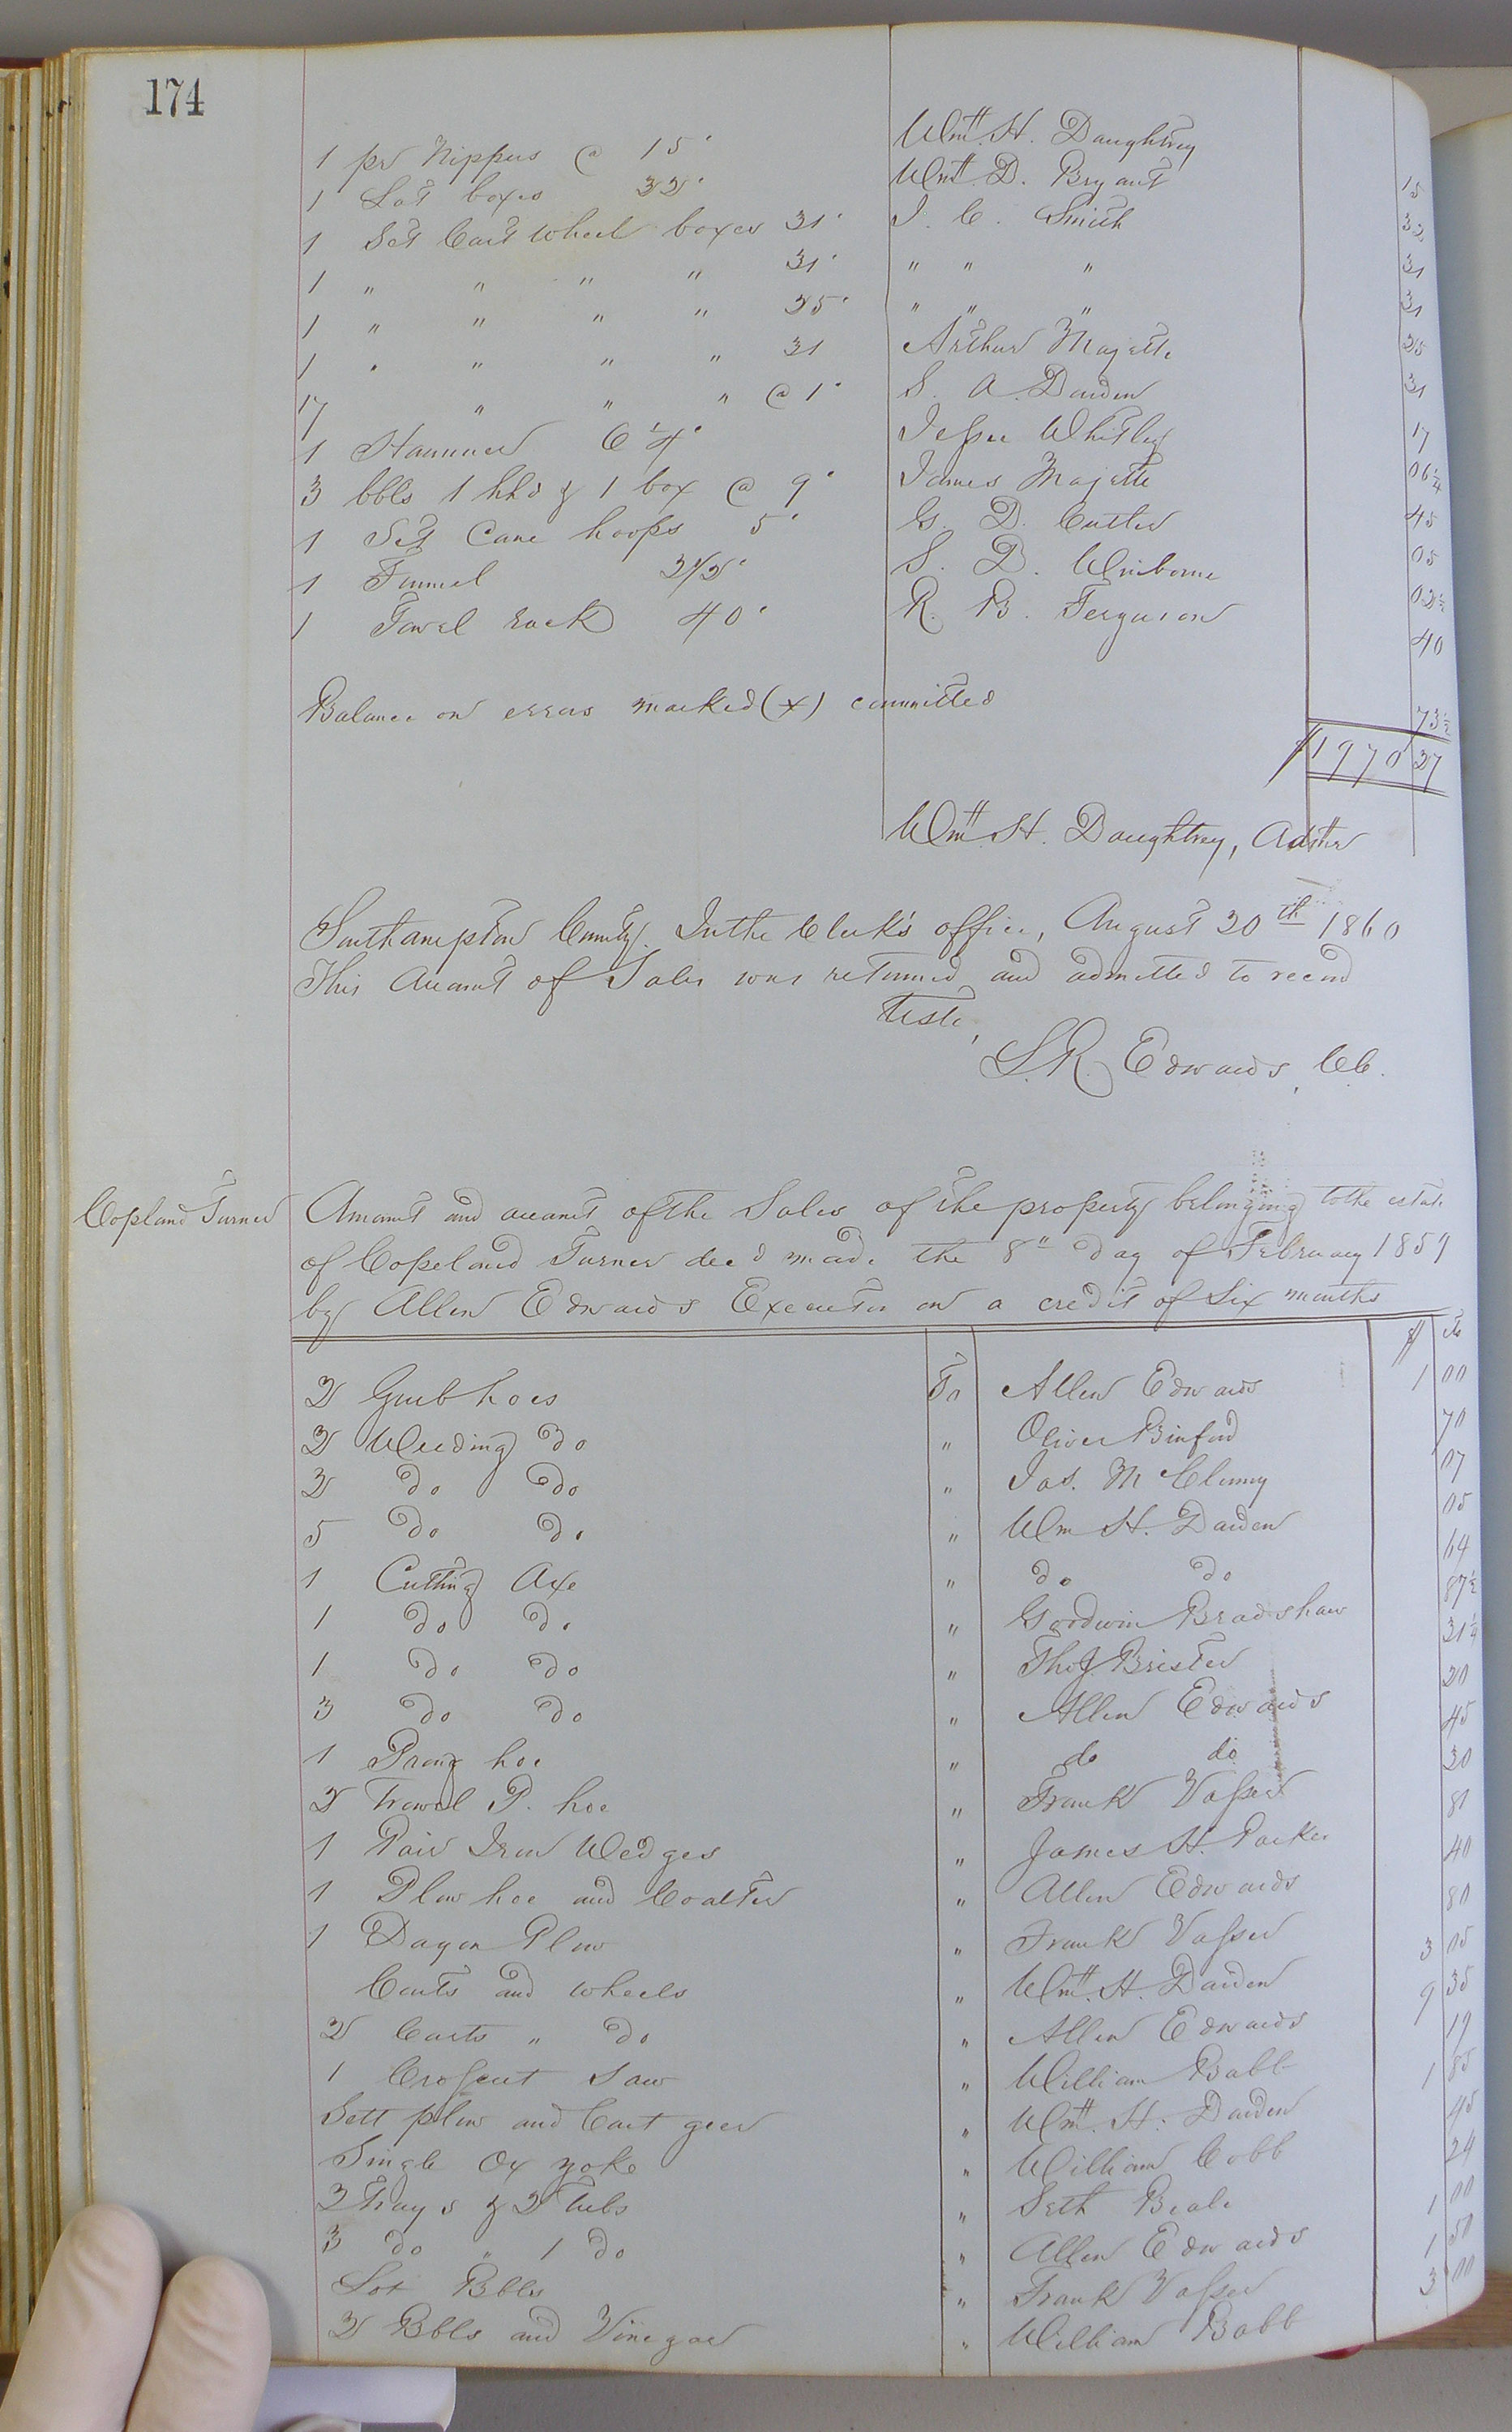 174
1 pr Nippers @ 15" Wm. H. Daughtrey 15
1 Lot boxes 32" Wm. D. Bryant 32
1 Set Cart wheel boxes 31" J. C. Smith 31
1 " " " " 31" " " " 31
1 " " " " 25" " " " 25
1 " " " " 31 Arthur Majette 31
17 " " " @ 1" S. A. Darden 17
1 Hammer 6 1/4" Jesse Whitley 06 1/4
3 bbls 1 hhd & 1 box @ 9" James Majette 45
1 Set Cane hoops 5" G. D. Cutler 05
1 Funnel 2 1/2" S. D. Winborne 02 1/2
1 Towel rack 40" R. B. Ferguson 40
Balance on errors marked (x) committed 73 1/2
$1970 27
Wm. H. Daughtrey, Admr
Southampton County. In the Clerk's office, August 20th 1860
This Account of Sales was returned and admitted to record
Teste,
L. R. Edwards, CC.
Copland Turner
Amount and account of the Sales of the property belonging to the estate
of Copeland Turner decd made the 8" day of February 1859
by Allen Edwards Executor on a credit of Six months
$ cts
2 Grub hoes To Allen Edwards 1 00
2 Weeding do " Oliver Binford 70
2 do do " Jas. M Clenny 07
5 do do " Wm H. Darden 05
1 Cutting Axe " do do 64
1 do do " Goodwin Bradshaw 87 1/2
1 do do " Thos J. Brister 31 1/4
3 do do " Allen Edwards 20
1 Prong hoe " do do 45
2 Trowel P. hoe " Frank Vasser 30
1 Pair Iron Wedges " James H. Parker 81
1 Plow hoe and Coalter " Allen Edwards 40
1 Dagon Plow " Frank Vasser 80
Carts and wheels " Wm. H. Darden 3 05
2 Carts " do " Allen Edwards 9 35
1 Crosscut Saw " William Babb 19
Sett plow and Cart geer " Wm. H. Darden 1 85
Single Ox yoke " William Cobb 45
2 Trays & 2 Tubs " Seth Beale 24
3 do " 1 do " Allen Edwards 1 00
Lot Bbls " Frank Vasser 1 50
2 Bbls and Vinegar " William Babb 3 00